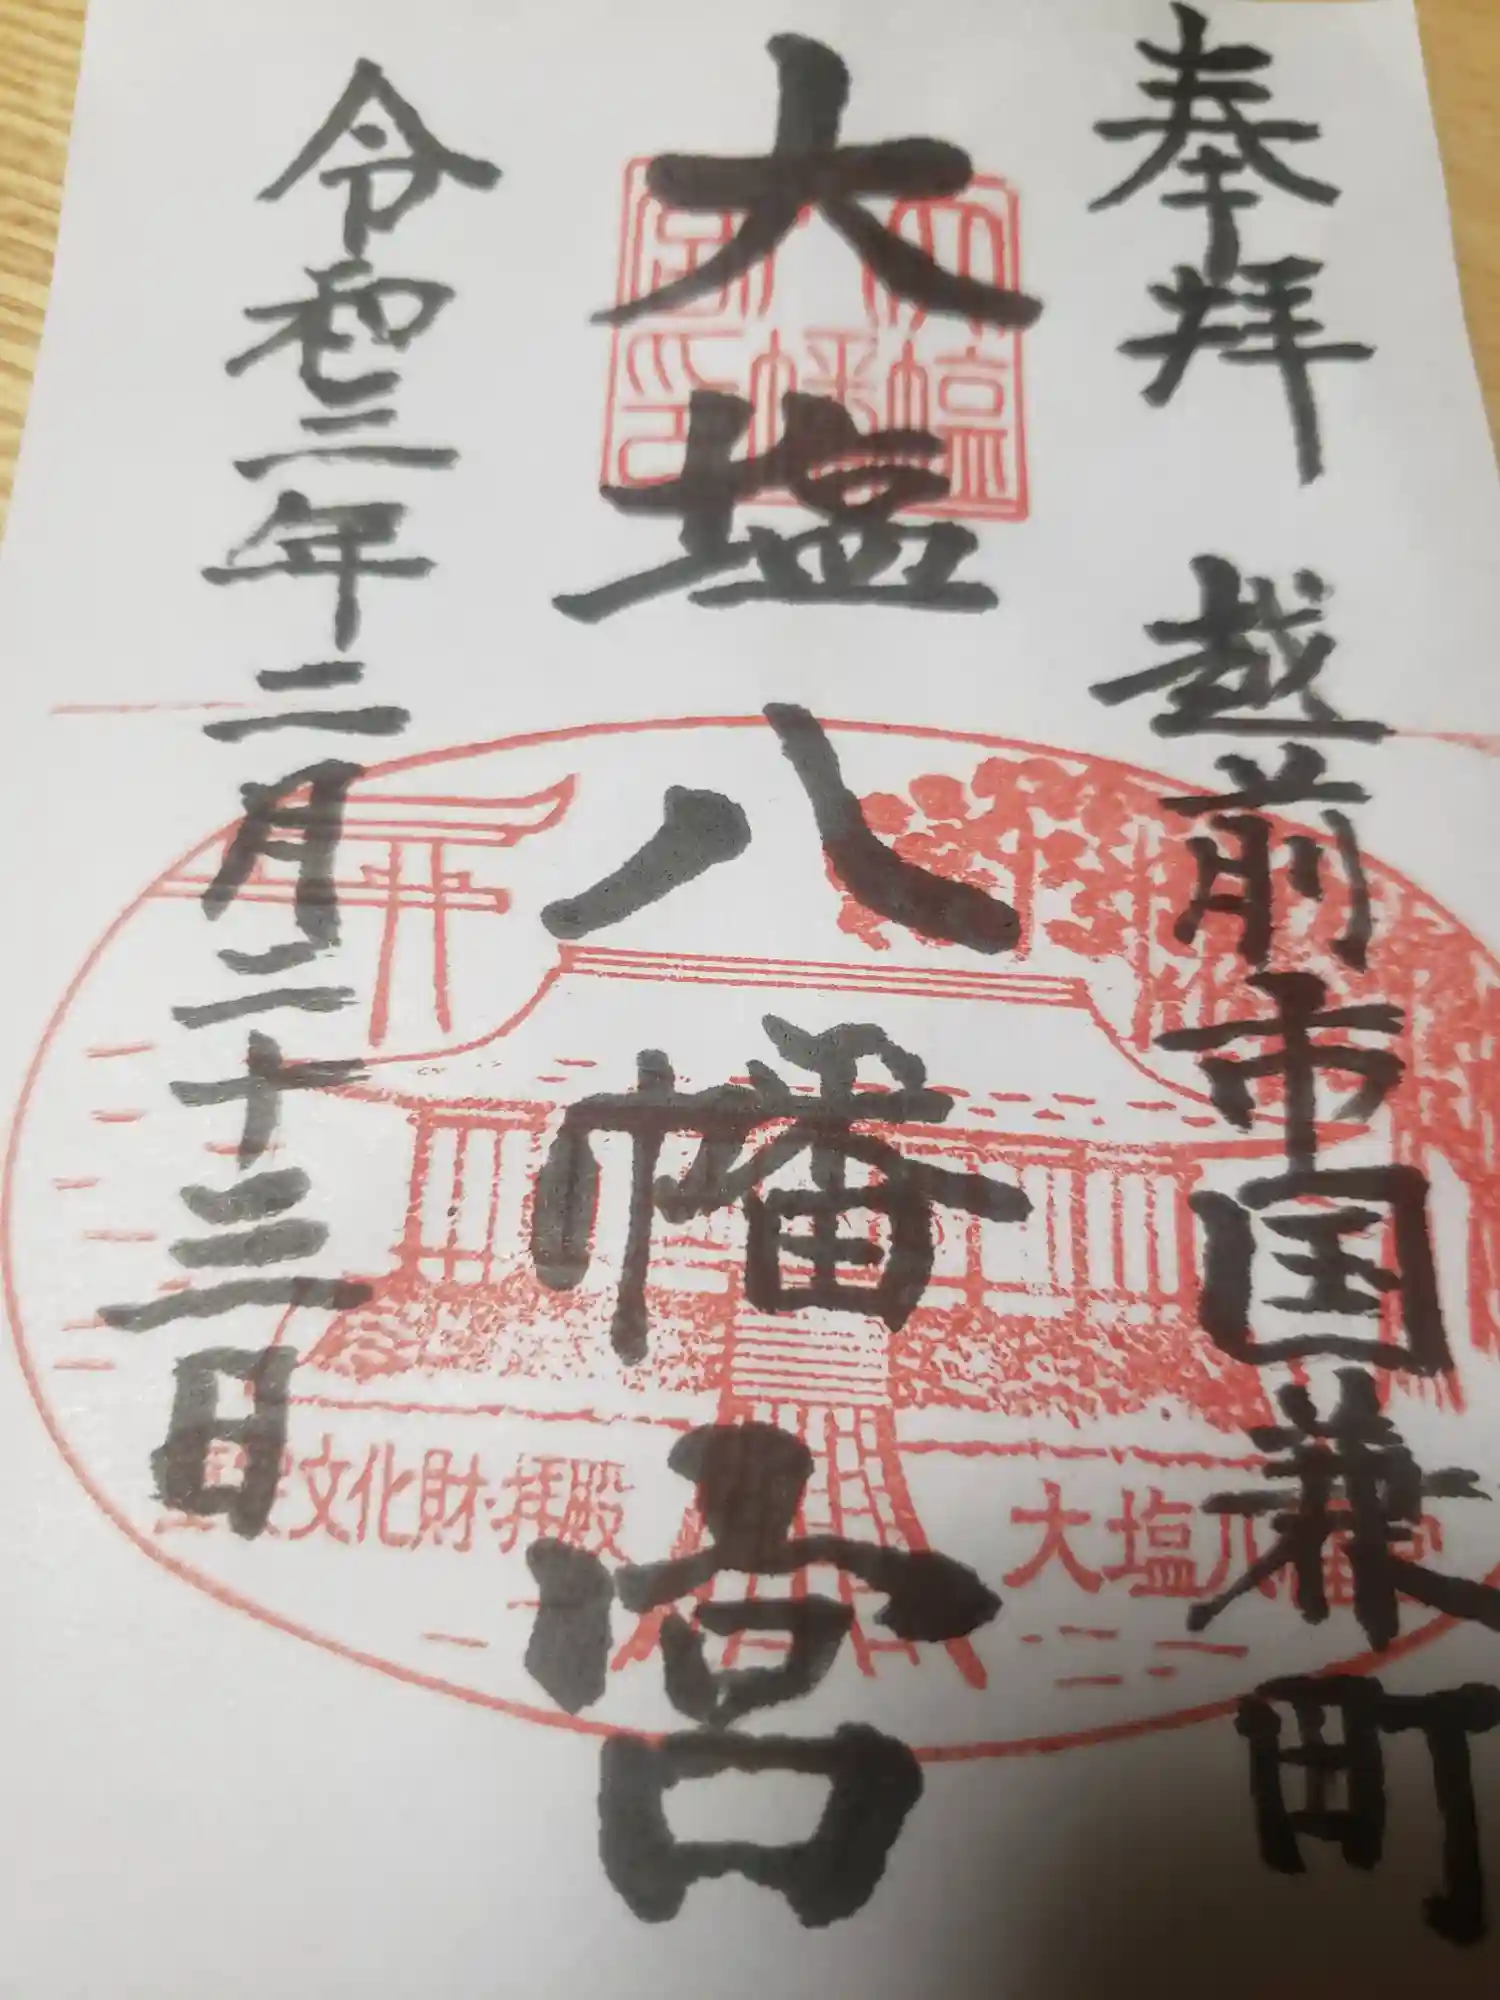 奉拝 越前市国兼町
大塩八幡宮
令和三年二月二十三日
大塩八幡宮
文化財・拝殿